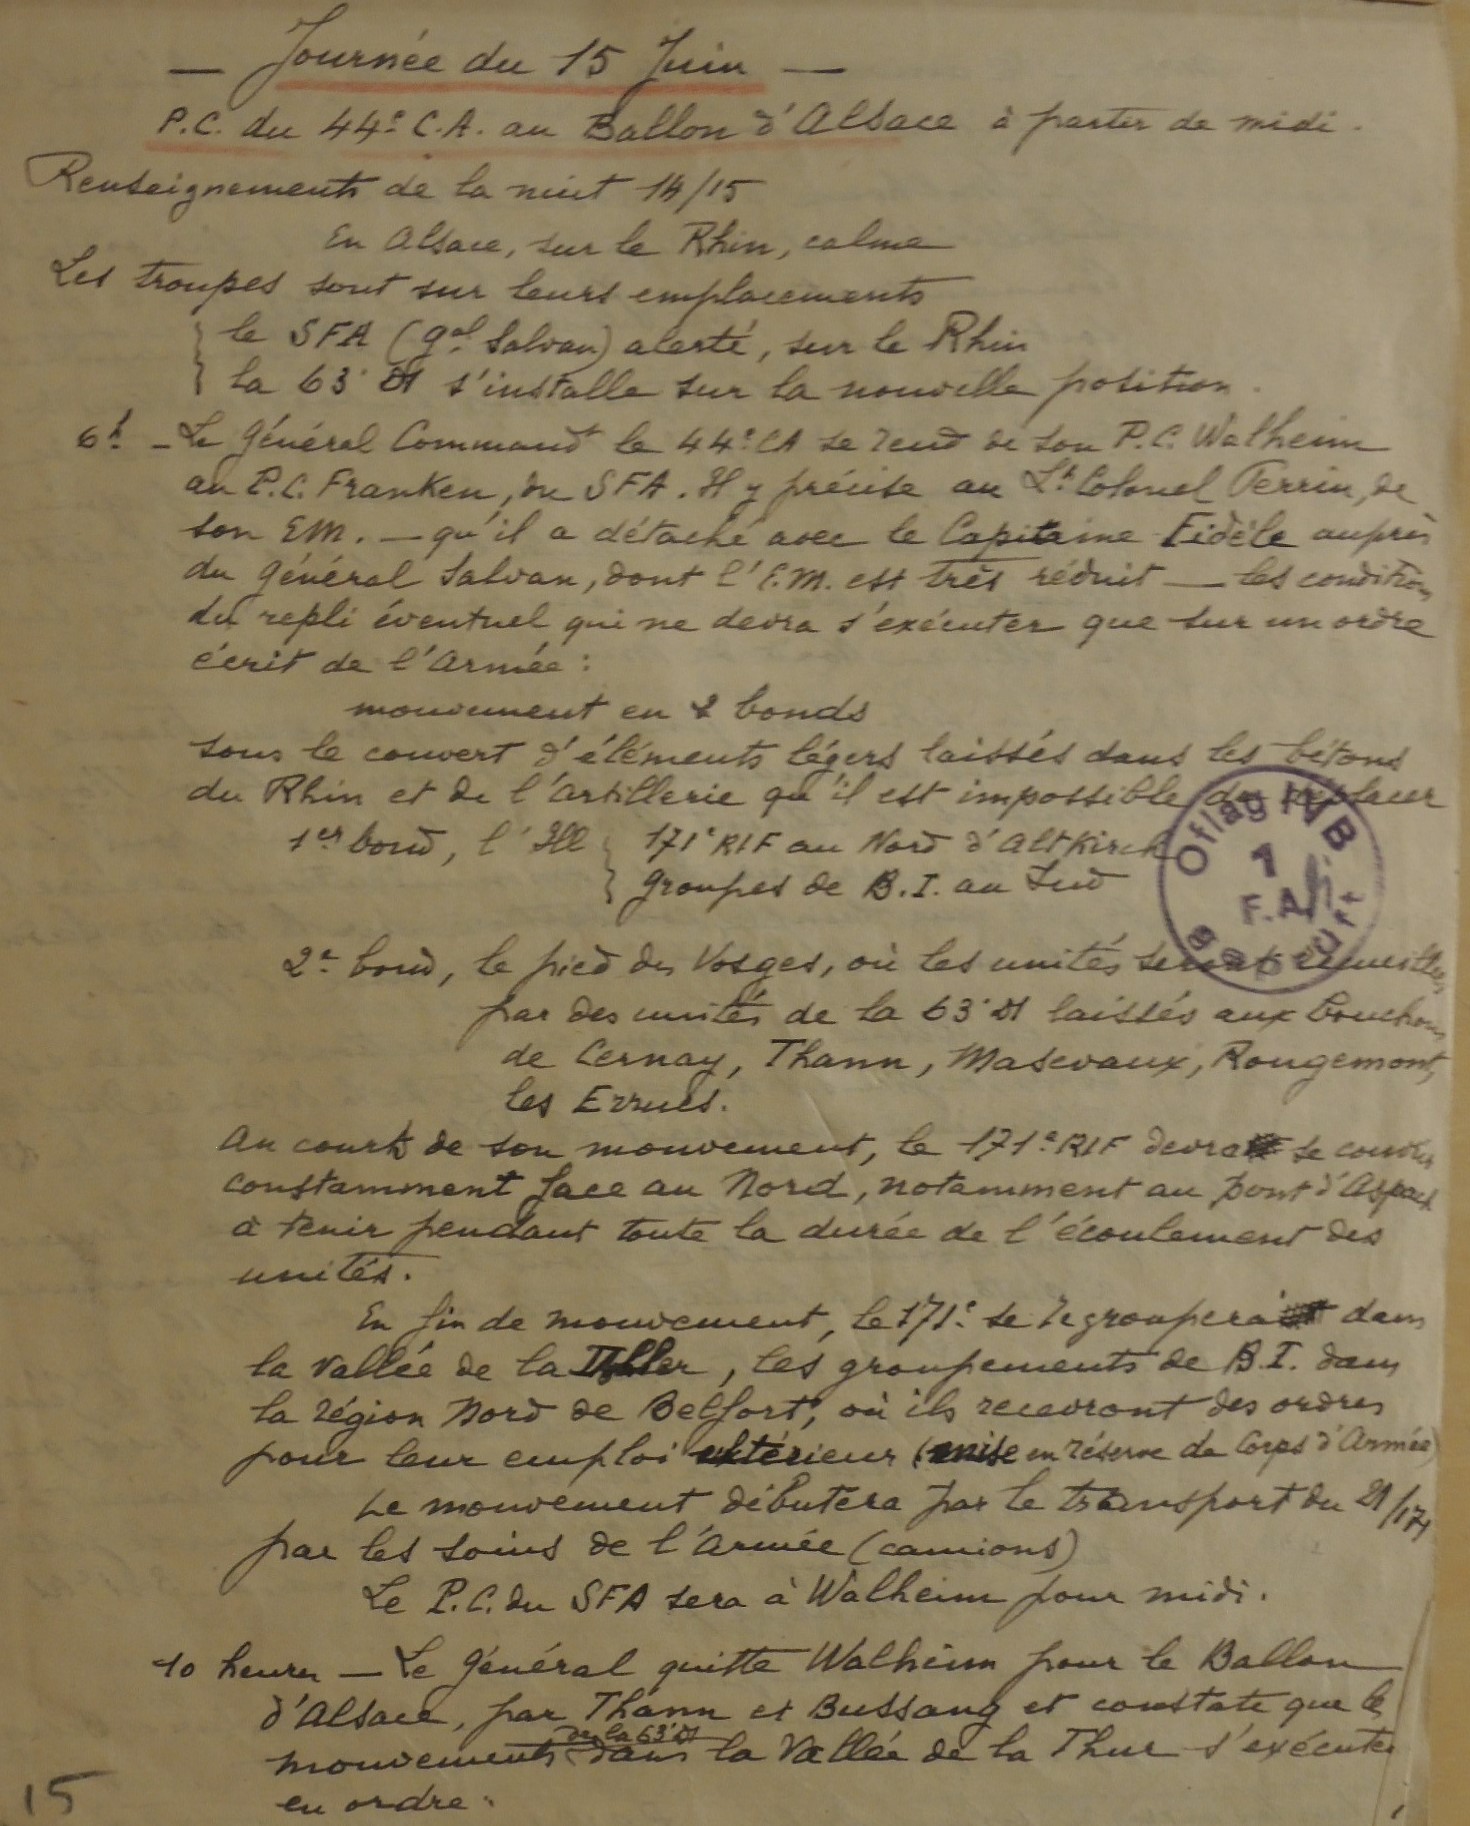 — Journée du 15 Juin —
P.C. du 44e C.A. au Ballon d'Alsace à partir de midi.
Renseignements de la nuit 14/15
En Alsace, sur le Rhin, calme
Les troupes sont sur leurs emplacements
le SFA (Gal Salvan) alerté, sur le Rhin
la 63e DI s'installe sur la nouvelle position.
6h - Le Général Commandt le 44e CA se rend de son P.C. Walheim
au P.C. Franken, du SFA. Il y précise au Lt Colonel Perrin, de
son EM. — qu'il a détaché avec le Capitaine Fidèle auprès
du Général Salvan, dont l'E.M. est très réduit — les conditions
du repli éventuel qui ne devra s'exécuter que sur un ordre
écrit de l'Armée :
mouvement en 2 bonds
sous le couvert d'éléments légers laissés dans les bétons
du Rhin et de l'artillerie qu'il est impossible de déplacer
1er bond, l'Ill { 171e RIF au Nord d'Altkirch
groupes de B.I. au Sud
Oflag IV B
1
F.A.
geprüft
2e bond, le pied des Vosges, où les unités seront recueillies
par des unités de la 63e DI laissés aux bouchons
de Cernay, Thann, Masevaux, Rougemont,
les Errues.
Au cours de son mouvement, le 171e RIF devra se couvrir
constamment face au Nord, notamment au pont d'Aspach
à tenir pendant toute la durée de l'écoulement des
unités.
En fin de mouvement, le 171e se regroupera dans
la vallée de la Doller, les groupements de B.I. dans
la région Nord de Belfort, où ils recevront des ordres
pour leur emploi ultérieur (mise en réserve de Corps d'Armée)
Le mouvement débutera par le transport du 21/171
par les soins de l'Armée (camions)
Le P.C. du SFA sera à Walheim pour midi.
10 heures — Le Général quitte Walheim pour le Ballon
d'Alsace, par Thann et Bussang et constate que les
mouvements de la 63e DI dans la Vallée de la Thur s'exécutent
en ordre.
15